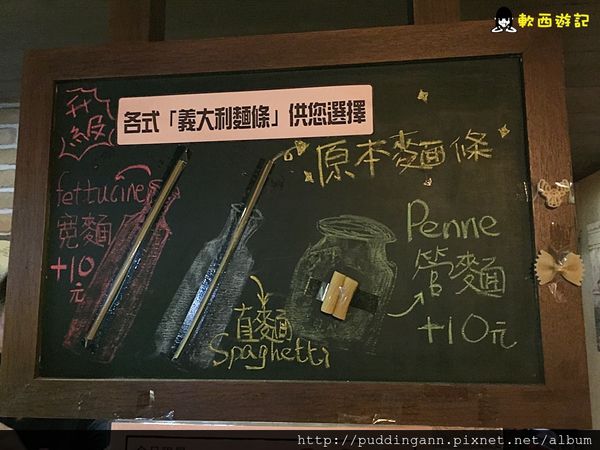 軟西遊記
各式「義大利麵條」供您選擇
升級
原本麵條
fettucine
寬麵
+10元
直麵
Spaghetti
Penne
管麵
+10元
http://puddingann.pixnet.net/album